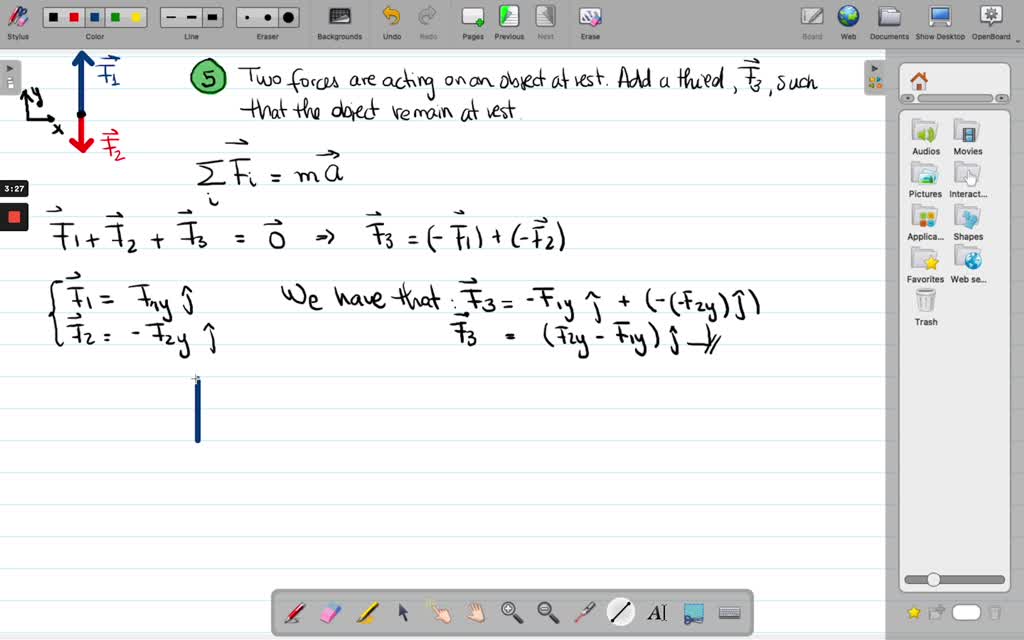 Stylus Color Line Eraser Backgrounds Undo Redo Pages Previous Next Erase Board Web Documents Show Desktop OpenBoard
F₁
y
x
F₂
5 Two forces are acting on an object at rest. Add a third, F₃, such
that the object remain at rest.
Σ Fᵢ = m a
i
3:27
F₁ + F₂ + F₃ = 0 ⇒ F₃ = (-F₁) + (-F₂)
F₁ = F₁y ĵ We have that: F₃ = -F₁y ĵ + (-(-F₂y) ĵ)
F₂ = -F₂y ĵ F₃ = (F₂y - F₁y) ĵ
Audios Movies
Pictures Interact...
Applica... Shapes
Favorites Web se...
Trash
AI